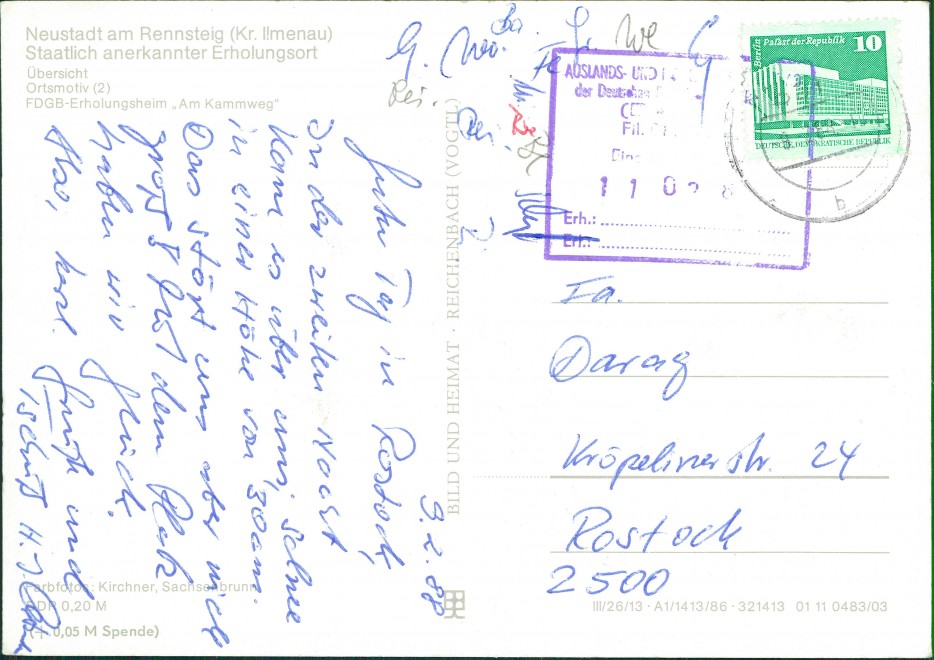 Neustadt am Rennsteig (Kr. Ilmenau)
Staatlich anerkannter Erholungsort
Übersicht
Ortsmotiv (2)
FDGB-Erholungsheim „Am Kammweg"
9.2.88
Guten Tag in Rostock,
In der zweiten Nacht
kam es über uns, Schnee
in einer Höhe von 30cm.
Das stört uns aber nicht
groß, mit dem Platz
haben wir Glück.
Also, herzl. Grüße und
BILD UND HEIMAT · REICHENBACH (VOGTL)
Farbfotos: Kirchner, Sachsenbrunn
DDR 0,20 M
(+ 0,05 M Spende)
We
Rei.
AUSLANDS- UND
der Deutschen
Fil.
1 1 02 8
Erh.:
Erl.:
Berlin Palast der Republik 10
DEUTSCHE DEMOKRATISCHE REPUBLIK
b
Fa.
Darag
Kröpelinerstr. 24
Rostock
2500
III/26/13 · A1/1413/86 · 321413 01 11 0483/03